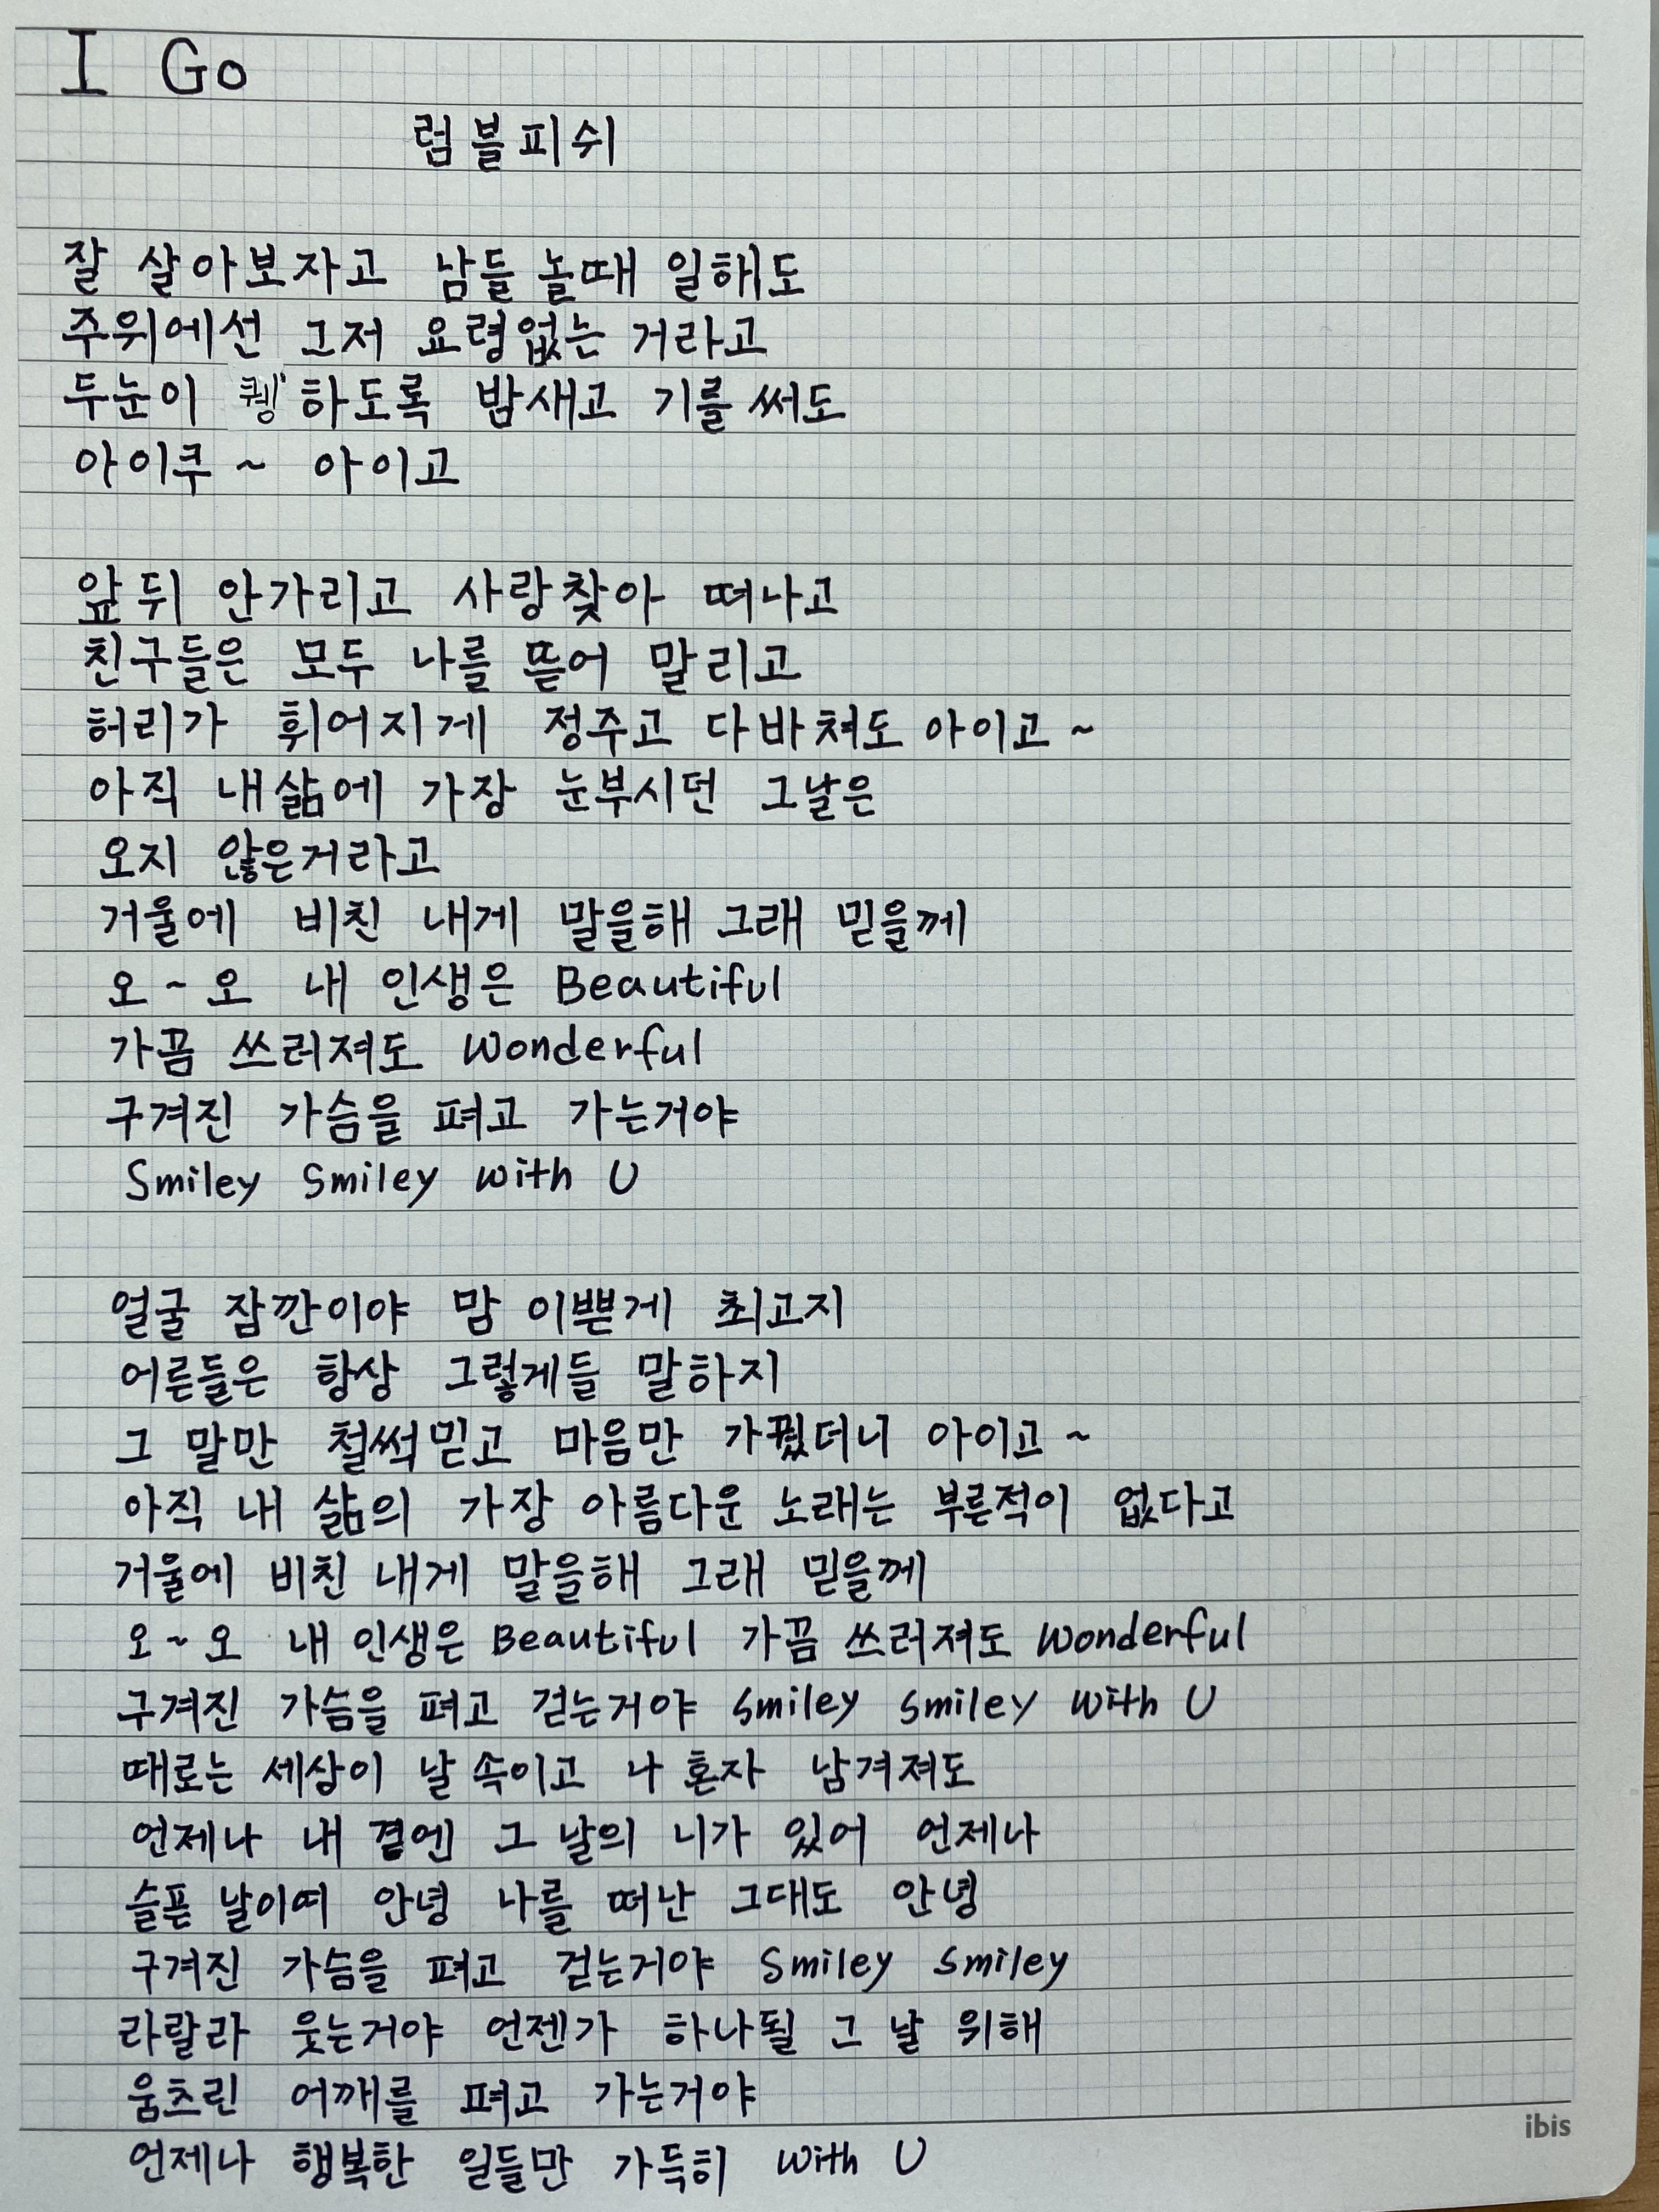 I Go
럼블피쉬
잘 살아보자고 남들 놀때 일해도
주위에선 그저 요령없는 거라고
두눈이 퀭하도록 밤새고 기를 써도
아이쿠 ~ 아이고
앞뒤 안가리고 사랑찾아 떠나고
친구들은 모두 나를 뜯어 말리고
허리가 휘어지게 정주고 다바쳐도 아이고 ~
아직 내삶에 가장 눈부시던 그날은
오지 않은거라고
거울에 비친 내게 말을해 그래 믿을께
오 ~ 오 내 인생은 Beautiful
가끔 쓰러져도 Wonderful
구겨진 가슴을 펴고 가는거야
Smiley Smiley with U
얼굴 잠깐이야 맘 이쁜게 최고지
어른들은 항상 그렇게들 말하지
그 말만 철썩믿고 마음만 가꿨더니 아이고 ~
아직 내 삶의 가장 아름다운 노래는 부른적이 없다고
거울에 비친 내게 말을해 그래 믿을께
오 ~ 오 내 인생은 Beautiful 가끔 쓰러져도 Wonderful
구겨진 가슴을 펴고 걷는거야 Smiley Smiley With U
때로는 세상이 날 속이고 나 혼자 남겨져도
언제나 내 곁엔 그 날의 니가 있어 언제나
슬픈 날이여 안녕 나를 떠난 그대도 안녕
구겨진 가슴을 펴고 걷는거야 Smiley Smiley
라랄라 웃는거야 언젠가 하나될 그 날 위해
움츠린 어깨를 펴고 가는거야
언제나 행복한 일들만 가득히 With U
ibis